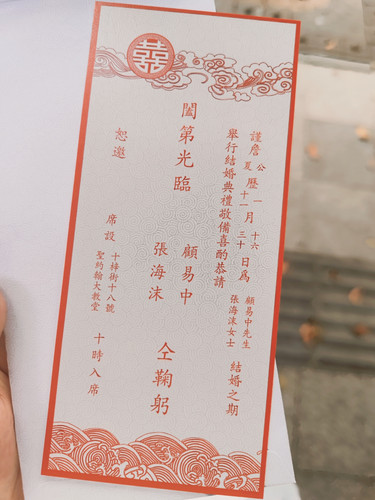 囍
謹詹公夏曆一十一月十六三十日為顧易中先生張海沫女士結婚之期
舉行結婚典禮敬備喜酌恭請
闔第光臨
顧易中
張海沫
仝鞠躬
恕邀
席設十梓街十八號聖約翰大教堂十時入席